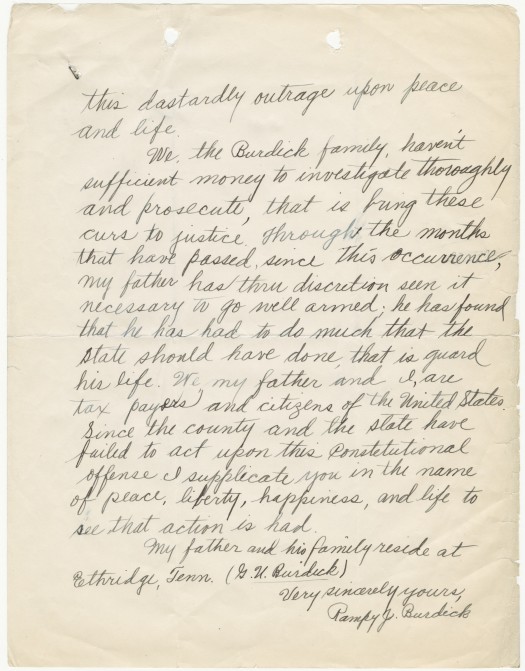 this dastardly outrage upon peace
and life.
We, the Burdick family, haven't
sufficient money to investigate thoroughly
and prosecute, that is bring these
curs to justice. Through the months
that have passed, since this occurrence,
my father has thru discretion seen it
necessary to go well armed; he has found
that he has had to do much that the
state should have done, that is guard
his life. We, my father and I, are
tax payers and citizens of the United States.
Since the county and the state have
failed to act upon this constetutional
offense I supplicate you in the name
of peace, liberty, happiness, and life to
see that action is had.
My father and his family reside at
Ethridge, Tenn. (G. U. Burdick)
Very sincerely yours,
Rampy J. Burdick